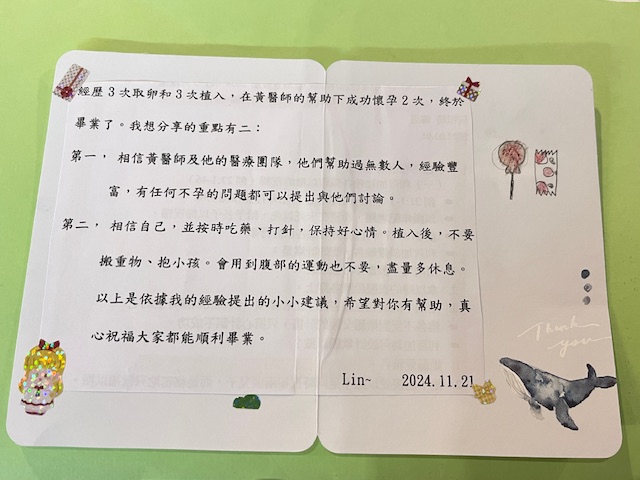 經歷3次取卵和3次植入，在黃醫師的幫助下成功懷孕2次，終於
畢業了。我想分享的重點有二：
第一， 相信黃醫師及他的醫療團隊，他們幫助過無數人，經驗豐
富，有任何不孕的問題都可以提出與他們討論。
第二， 相信自己，並按時吃藥、打針，保持好心情。植入後，不要
搬重物、抱小孩。會用到腹部的運動也不要，盡量多休息。
以上是依據我的經驗提出的小小建議，希望對你有幫助，真
心祝福大家都能順利畢業。
Lin~ 2024.11.21
Thank
you